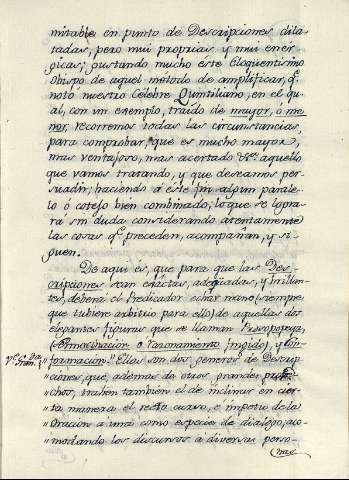 mitable en punto de Descripciones dila-
tadas, pero mui propriais y mui ener-
gicas; gustando mucho este Eloquentisimo
Obispo de aquel metodo de amplificar, q.e
notó nuestro Celebre Quintiliano, en el qu-
al, con un exemplo, traido de mayor, o me-
nor, recorremos todas las circunstancias,
para comprobar, que es mucho mayor,
mas ventajoso, mas acertado &c. aquello
que vamos tratando, y que deseamos per-
suadir; haciendo á este fin algun parale-
lo ó cotejo bien combinado; lo que se logra-
rá sin duda considerando atentamente
las cosas q.e preceden, acompañan, y si-
guen.
De aqui es, que para que las Des-
cripciones sean exactas, adequadas, y brillan-
tes, deberá el Predicador echar mano (siempre
que tubiere arbitrio para ello) de aquellas dos
elegantes figuras que se llaman Prosopopeya,
fingido), y Con-
formacion. Ellas son dos generos de Descrip-
ciones, que, además de otros grandes
chos, trahen tambien el de inclinar en cier-
ta manera el recto curso, é imperio de la
Oracion a una como especie de dialogo, aco-
modando los discursos a diversas perso-
nas